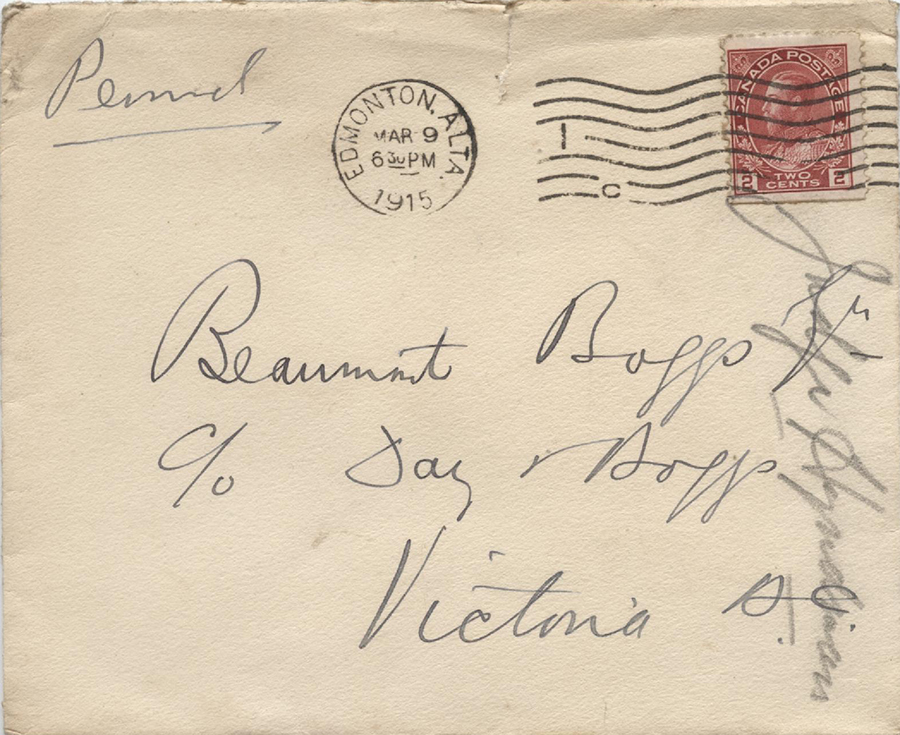 EDMONTON, ALTA.
MAR 9
6 30 PM
1915
1
C
CANADA POSTAGE
2 TWO CENTS 2
Beaumont Boggs Jr
c/o Day & Boggs
Victoria